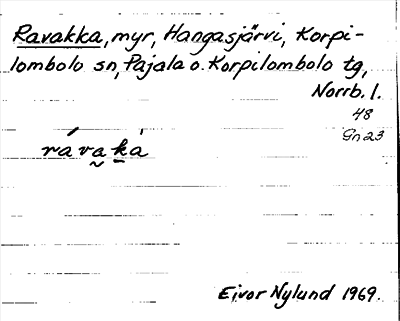 Ravakka, myr, Hangasjärvi, Korpi-
lombolo sn, Pajala o. Korpilombolo tg,
Norrb. l.
48
Gn 23
rávak̠à
Eivor Nylund 1969.